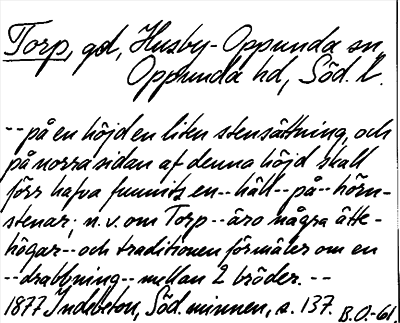 Torp, gd, Husby-Oppunda sn,
Oppunda hd, Söd. l.
-- på en höjd en liten stensättning, och
på norra sidan af denna höjd skall
förr hafva funnits en -- häll -- på -- hörn-
stenar; n. v. om Torp -- äro några ätte-
högar -- och traditionen förmäler om en
-- drabbning -- mellan 2 bröder. --
1877 Indebetou, Söd. minnen, s. 137. B.O-61.